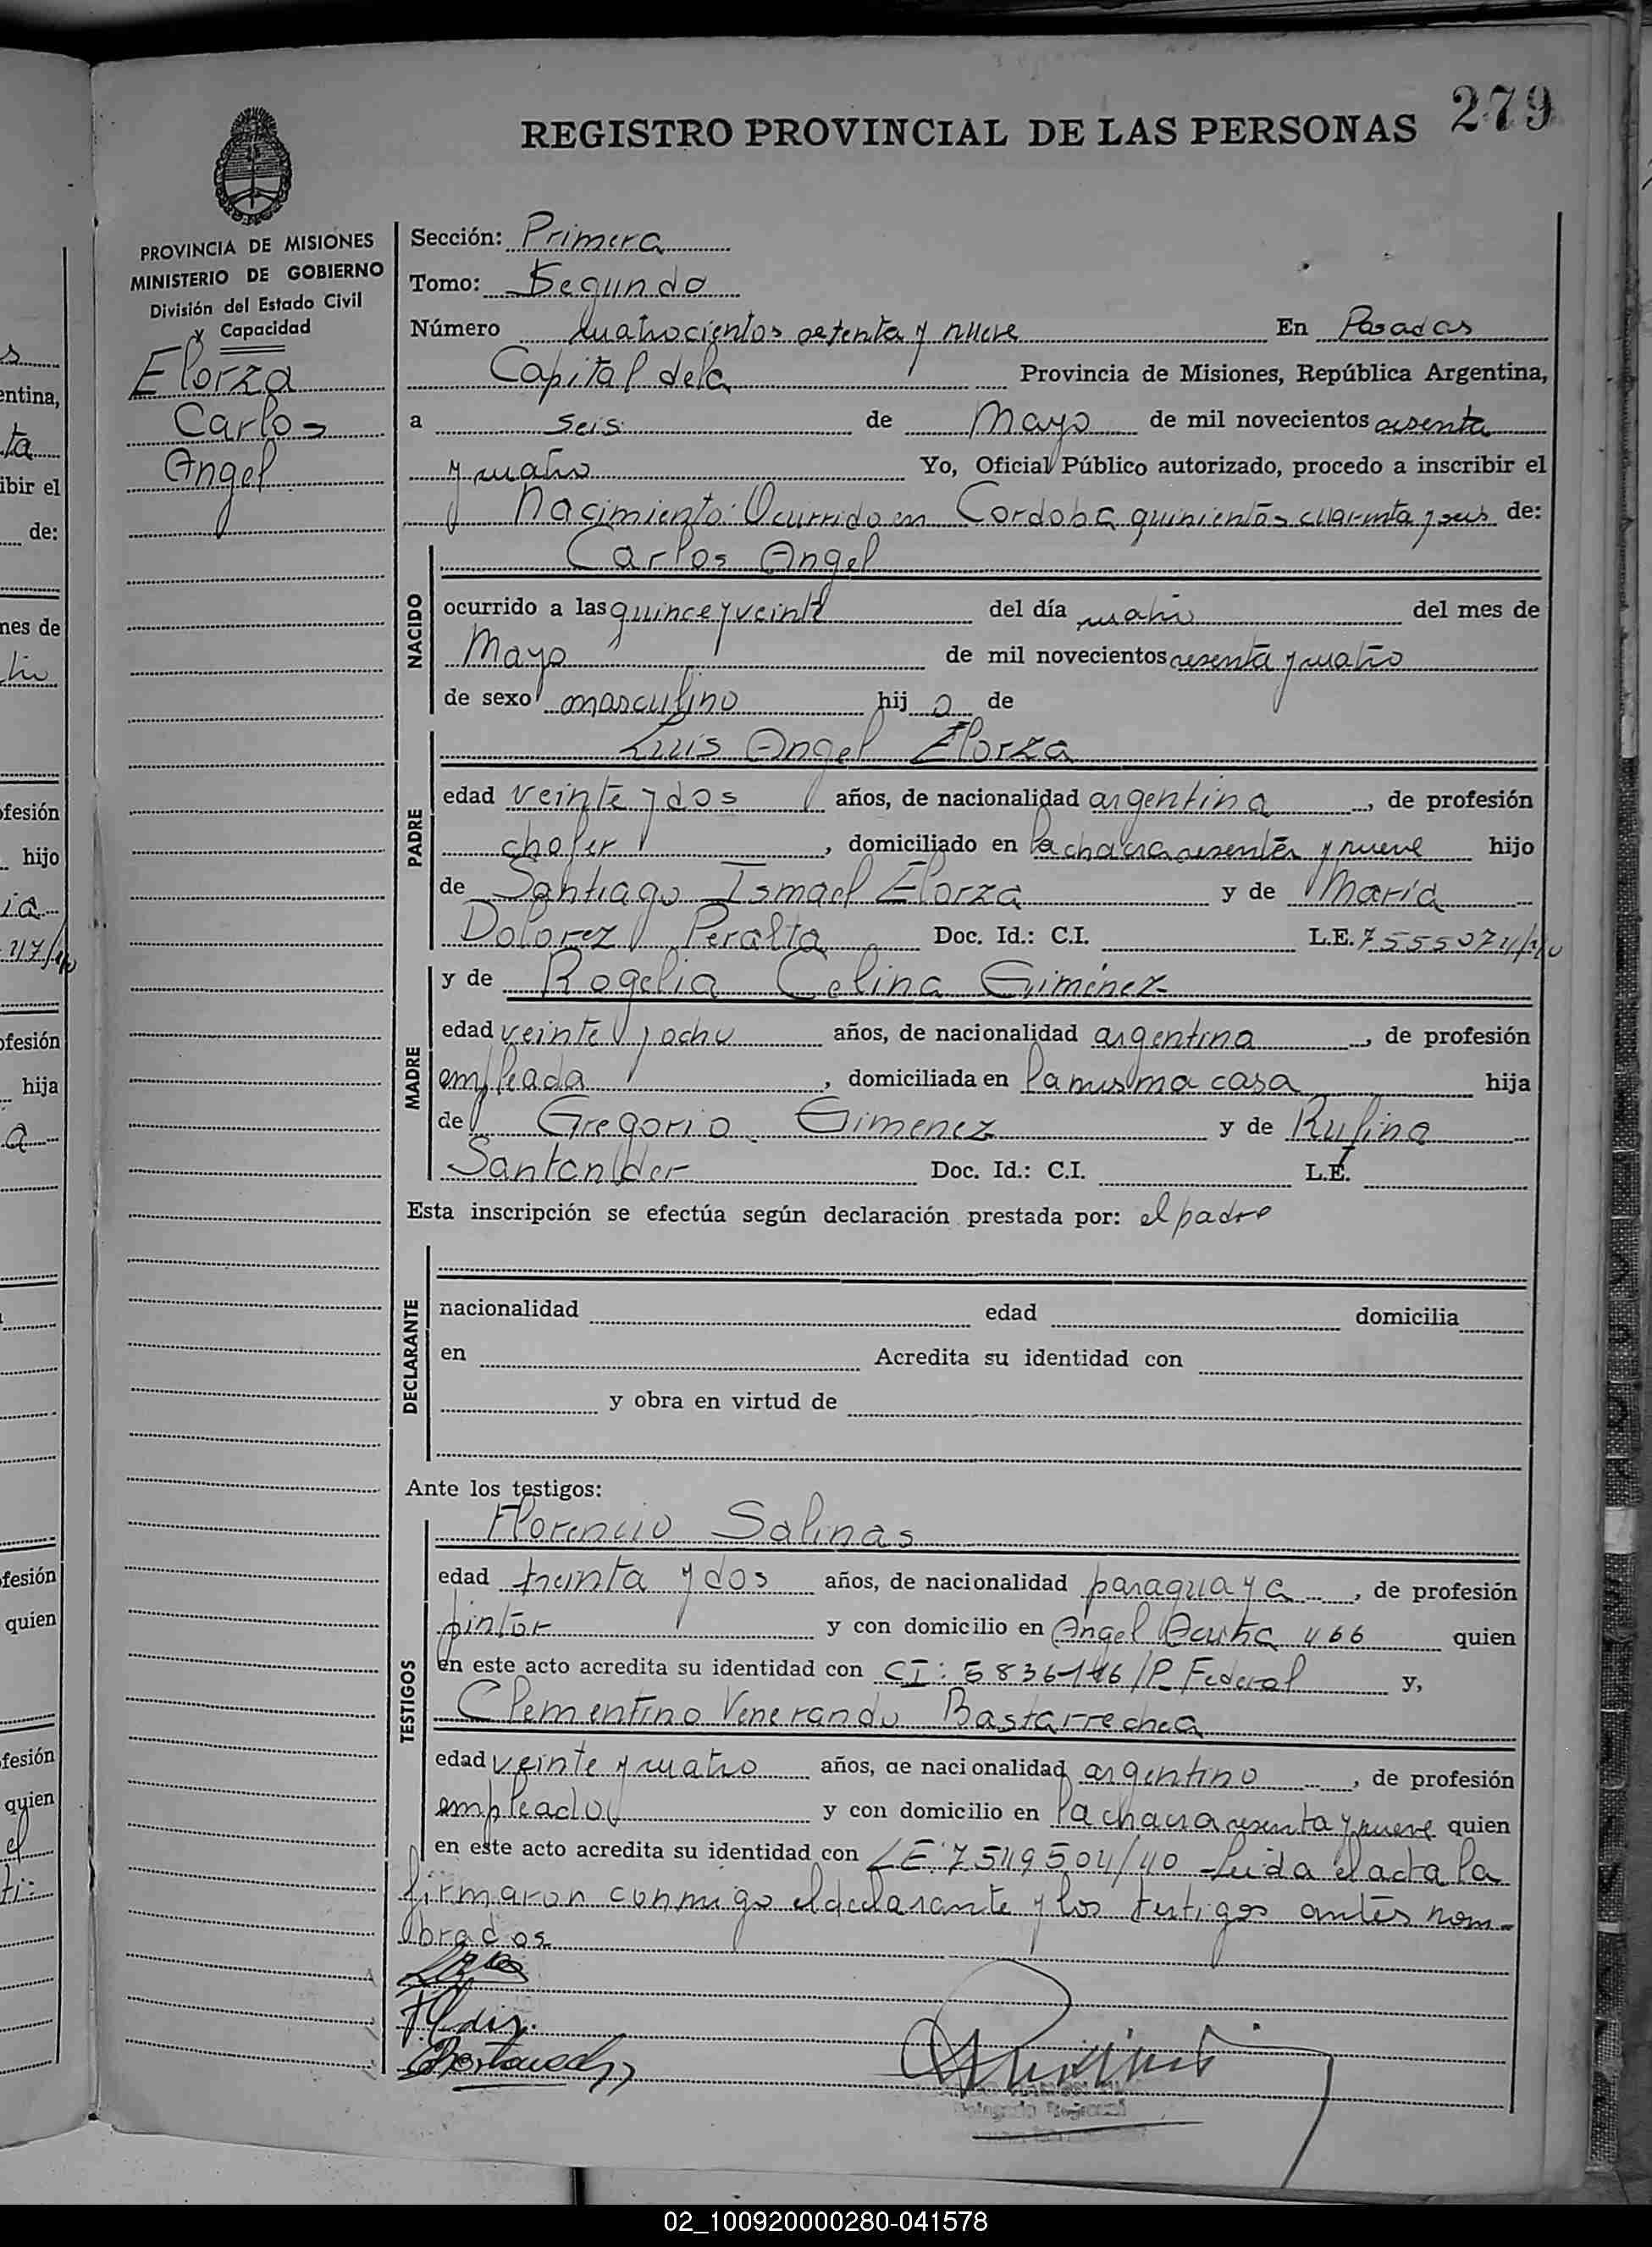 279
REGISTRO PROVINCIAL DE LAS PERSONAS
PROVINCIA DE MISIONES
MINISTERIO DE GOBIERNO
División del Estado Civil
y Capacidad
Elorza
Carlos
Angel
Sección: Primera
Tomo: Segundo
Número cuatrocientos setenta y nueve En Posadas
Capital de la Provincia de Misiones, República Argentina,
a seis de Mayo de mil novecientos sesenta
y cuatro Yo, Oficial Público autorizado, procedo a inscribir el
Nacimiento: Ocurrido en Cordoba quinientos cuarenta y seis de:
Carlos Angel
NACIDO
ocurrido a las quince y veinte del día cuatro del mes de
Mayo de mil novecientos sesenta y cuatro
de sexo masculino hij o de
Luis Angel Elorza
PADRE
edad veinte y dos años, de nacionalidad argentina, de profesión
chofer, domiciliado en la chacra sesenta y nueve hijo
de Santiago Ismael Elorza y de María
Dolorez Peralta Doc. Id.: C.I. L.E. 7555074/40
y de Rogelia Celina Giménez
MADRE
edad veinte y ocho años, de nacionalidad argentina, de profesión
empleada, domiciliada en la misma casa hija
de Gregorio Gimenez y de Rufina
Santander Doc. Id.: C.I. L.E.
Esta inscripción se efectúa según declaración prestada por: el padre
DECLARANTE
nacionalidad edad domicilia
en Acredita su identidad con
y obra en virtud de
Ante los testigos:
Florencio Salinas
TESTIGOS
edad treinta y dos años, de nacionalidad paraguaya, de profesión
pintor y con domicilio en Angel Acuña 466 quien
en este acto acredita su identidad con CI: 5836146/P. Federal y,
Clementino Venerando Bastarrechea
edad veinte y cuatro años, de nacionalidad argentino, de profesión
empleado y con domicilio en la chacra sesenta y nueve quien
en este acto acredita su identidad con LE: 7549504/40 Leída el acta la
firmaron conmigo el declarante y los testigos antes nom-
brados
Delegado Regional
02_100920000280-041578